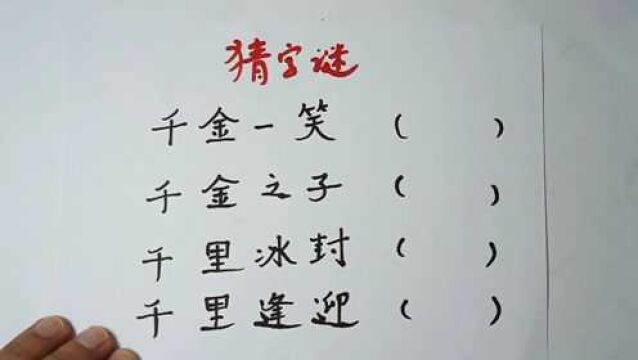 猜字谜
千金一笑（ ）
千金之子（ ）
千里冰封（ ）
千里逢迎（ ）